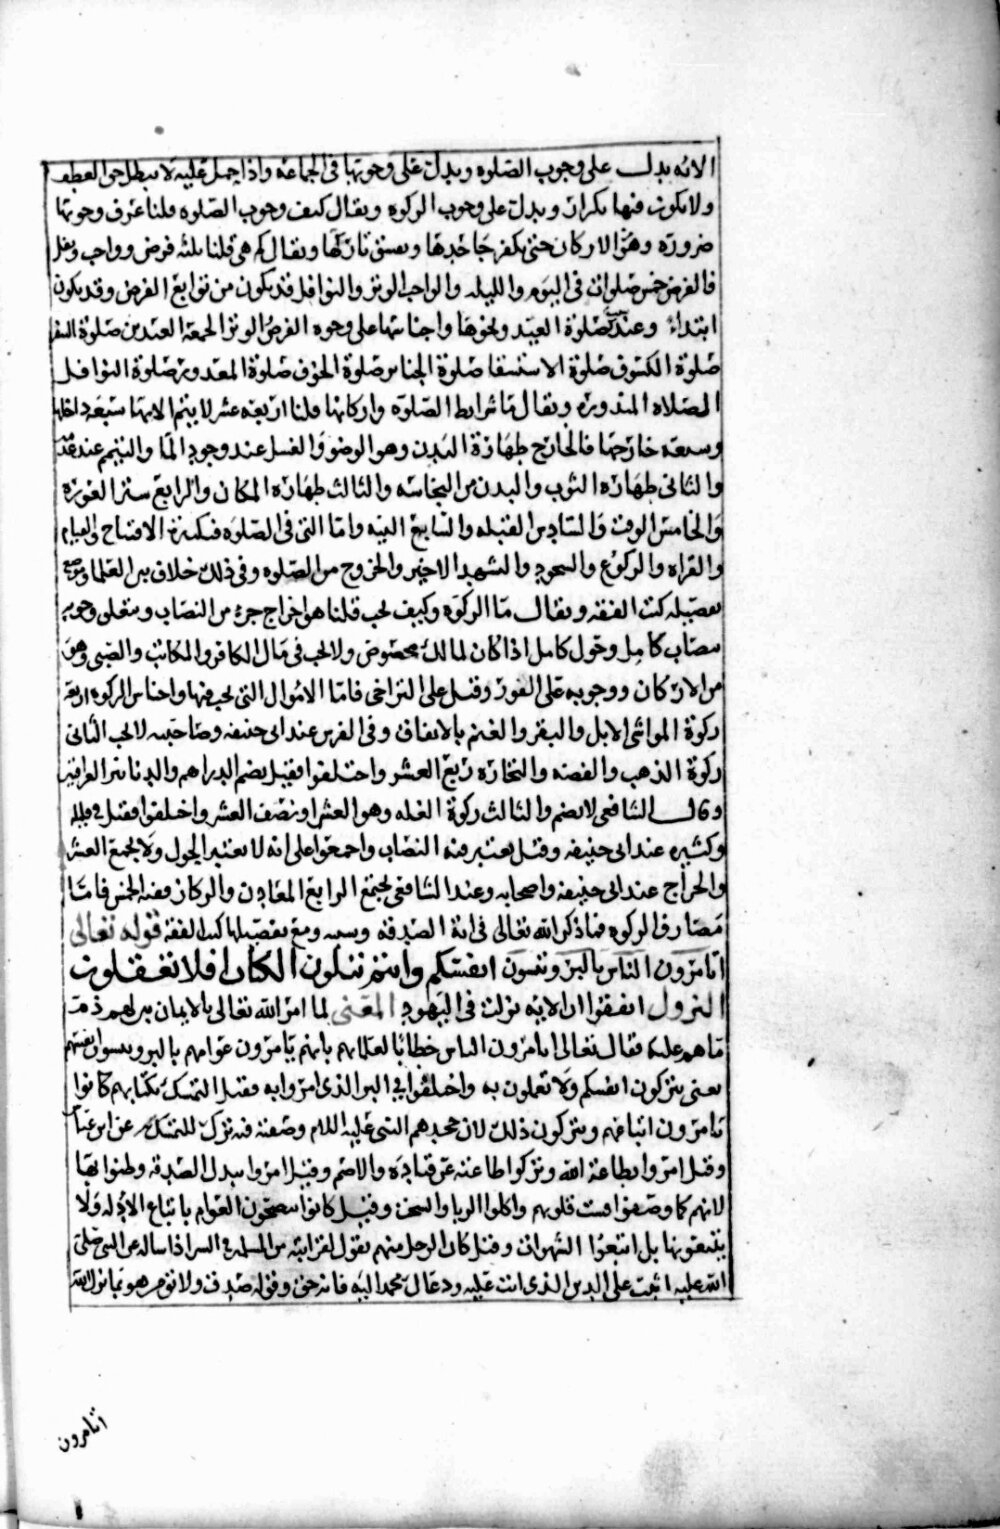 الايه يدل على وجوب الصلوه ويدل على وجوبها فى الجماعه واذا حمل عليه لا يبطل حق العطف
ولا يكون فيها تكرار ويدل على وجوب الزكوه ويقال كيف وجوب الصلوه قلنا عرف وجوبها
ضروره وهو الاركان حتى يكفر جاحدها ويفسق تاركها ويقال كم هى قلنا ثلثه فرض وواجب ونفل
فالفرض خمس صلوات فى اليوم والليله والواجب الوتر والنوافل قد يكون من توابع الفرض وقد يكون
ابتداء وعند صلوة العيد ونحوها واجناسها على وجوه الفرض الوتر الجمعه العيدين صلوة السفر
صلوة الكسوف صلوة الاستسقا صلوة الجنايز صلوة الخوف صلوة المعذورين صلوة النوافل
الصلاه المنذوره ويقال ما شرايط الصلوه واركانها قلنا اربعه عشر لا يتم الا بها سبعه داخلها
وسبعه خارجها فالخارج طهارة البدن وهو الوضو والغسل عند وجود الما والتيمم عند عدمه
والثانى طهاره الثوب والبدن من النجاسه والثالث طهاره المكان والرابع ستر العوره
والخامس الوقت والسادس القبله والسابع النيه واما التى فى الصلوه فتكبيرة الافتتاح والقيام
والقراه والركوع والسجود والتشهد الاخير والخروج من الصلوه وفى ذلك خلاف بين العلما وموضع
تفصيله كتب الفقه ويقال ما الزكوه وكيف تجب قلنا هو اخراج جزء من النصاب ويتعلق وجوبه
بنصاب كامل وحول كامل اذا كان لمالك مخصوص ولا تجب فى مال الكافر والمكاتب والصبى وهو
من الاركان ووجوبه على الفور وقيل على التراخى فاما الاموال التى تجب فيها واجناس الزكوه اربعة
زكوة المواشى الابل والبقر والغنم بالاتفاق وفى الفرس عند ابى حنيفه وصاحبيه لا تجب الثانى
زكوة الذهب والفضه والتجاره ربع العشر واختلفوا فقيل يضم الدراهم والدنانير
وقال الشافعى لا يضم والثالث زكوة الغله وهو العشر او نصف العشر واختلفوا فقيل فى قليله
وكثيره عند ابى حنيفه وقيل يعتبر فيه النصاب واجمعوا على انه لا يعتبر الحول ولا يجمع العشر
والخراج عند ابى حنيفه واصحابه وعند الشافعى يجتمع الرابع المعادن والركاز وفيه الخمس فاما
مصارف الزكوه فما ذكر الله تعالى فى اية الصدقه وموضع تفصيلها كتب الفقه قوله تعالى
اتامرون الناس بالبر وتنسون انفسكم وانتم تتلون الكتاب افلا تعقلون
النزول اتفقوا ان الايه نزلت فى اليهود المعنى لما امر الله تعالى بالايمان بين لهم ذم
ما هم عليه فقال تعالى اتامرون الناس خطابا لعلمائهم بانهم يامرون عوامهم بالبر وينسون انفسهم
يعنى يتركون انفسكم ولا تعملون به واختلفوا فى البر الذى امروا به فقيل التمسك بكتابهم كانوا
يامرون اتباعهم ويتركون ذلك لان جحدهم النبى عليه السلام وصفته فيه ترك للتمسك عن ابن عباس
وقيل امروا بطاعة الله وتركوا طاعته عن قتاده والاصم وقيل امروا ببذل الصدقه وظنوا بها
لانهم كما وصفوا قست قلوبهم واكلوا الربا والسحت وقيل كانوا ينصحون العوام باتباع الادله ولا
يتبعونها بل اتبعوا الشهوات وقيل كان الرجل منهم يقول لقرابته من المسلمه فى السر اذا ساله عن النبى صلى
الله عليه اثبت على الدين الذى انت عليه ودعاك محمد اليه فانه حق وقوله صدق ولا نومن هو بما نزل الله
اتامرون